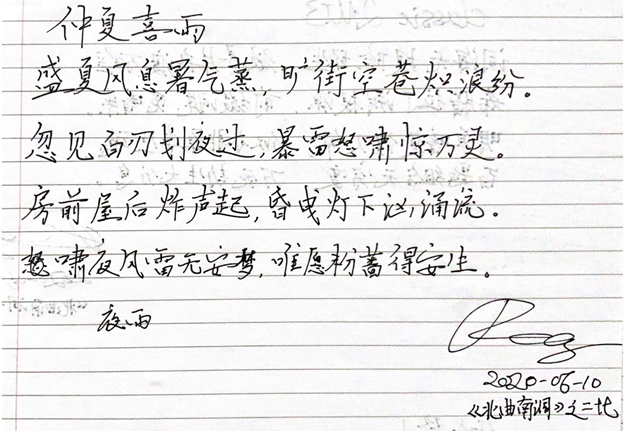 仲夏喜雨
盛夏风息暑气蒸，旷街空巷炽浪纷。
忽见百刃划夜过，暴雷怒啸惊万灵。
房前屋后炸声起，昏曳灯下汹涌流。
怒啸夜风雷无安梦，唯愿粉蔷得安生。
夜雨
2020-06-10
《北曲南涧》之二十七